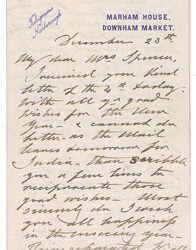 Telegrams
Narborough.
MARHAM HOUSE,
DOWNHAM MARKET.
December 28th
My dear Mrs Spencer,
I received your kind
letter of the 4th today
with all yr good
wishes for the New
Year - I cannot do
better - as the Mail
leaves tomorrow for
India - than scribble
you a few lines to
reciprocate those
good wishes - Most
sincerely do I wish
you all happiness
in the ensuing year -